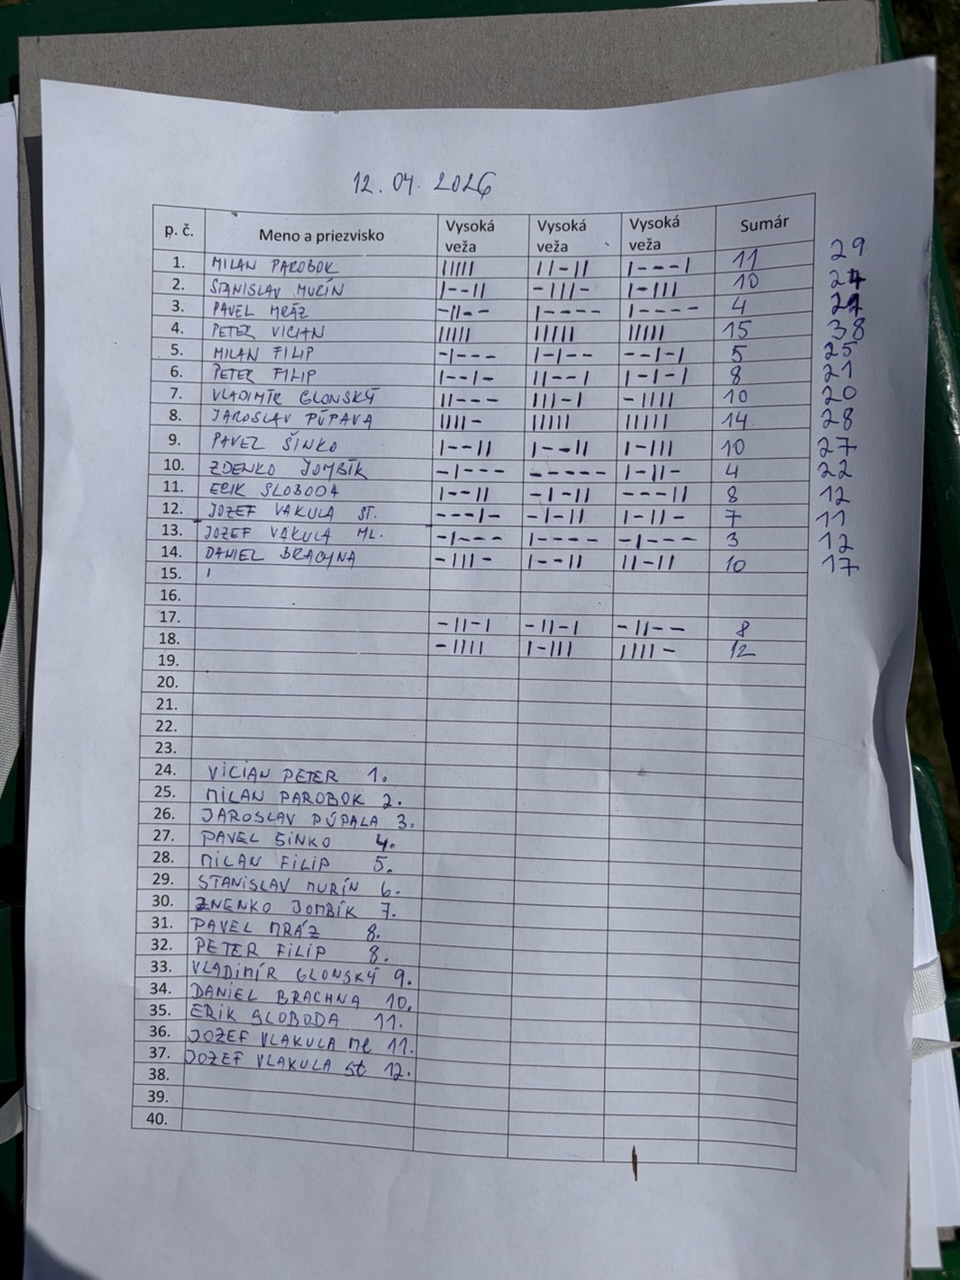 12. 04. 2026
p. č. Meno a priezvisko Vysoká veža Vysoká veža Vysoká veža Sumár
1. MILAN PAROBOK IIIII II-II I---I 11 29
2. STANISLAV MURÍN I--II -III- I-III 10 24
3. PAVEL MRÁZ -II-- I---- I---- 4
4. PETER VICIAN IIIII IIIII IIIII 15 38
5. MILAN FILIP -I--- I-I-- --I-I 5 25
6. PETER FILIP I--I- II--I I-I-I 8 21
7. VLADIMÍR GLONSKÝ II--- III-I -IIII 10 20
8. JAROSLAV PÚPAVA IIII- IIIII IIIII 14 28
9. PAVEL ŠINKO I--II I--II I-III 10 27
10. ZDENKO JOMBÍK -I--- ----- I-II- 4 22
11. ERIK SLOBODA I--II -I-II ---II 8 12
12. JOZEF VAKULA ST. ---I- -I-II I-II- 7 11
13. JOZEF VAKULA ML. -I--- I---- -I--- 3 12
14. DANIEL BRACHNA -III- I--II II-II 10 17
15.
16.
17. -II-I -II-I -II-- 8
18. -IIII I-III IIII- 12
19.
20.
21.
22.
23.
24. VICIAN PETER 1.
25. MILAN PAROBOK 2.
26. JAROSLAV PÚPALA 3.
27. PAVEL SINKO 4.
28. MILAN FILIP 5.
29. STANISLAV MURÍN 6.
30. ZNENKO JOMBÍK 7.
31. PAVEL MRÁZ 8.
32. PETER FILIP 8.
33. VLADIMÍR GLONSKÝ 9.
34. DANIEL BRACHNA 10.
35. ERIK SLOBODA 11.
36. JOZEF VLAKULA Ml 11.
37. JOZEF VLAKULA St 12.
38.
39.
40.